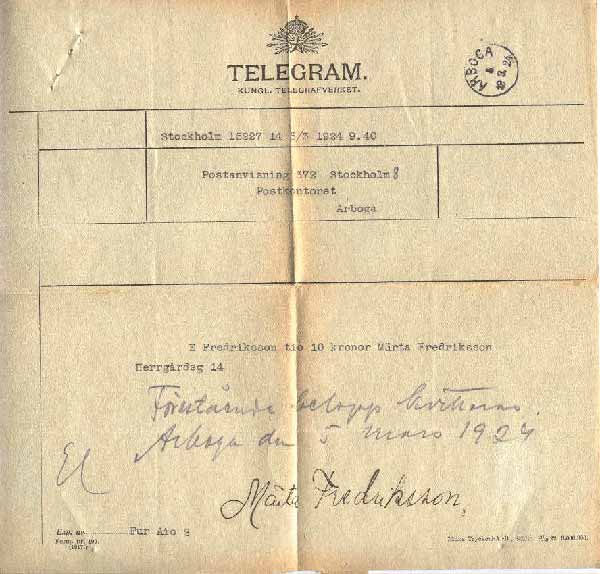 TELEGRAM.
KUNGL. TELEGRAFVERKET.
ARBOGA
Stockholm 15227 14 5/3 1924 9.40
Postanvisning 372 Stockholm 8
Postkontoret
Arboga
E Fredriksson tio 10 kronor Märta Fredriksson
Herrgårdsg 14
Förestående belopp kvitteras.
Arboga den 5 mars 1924
Märta Fredriksson,